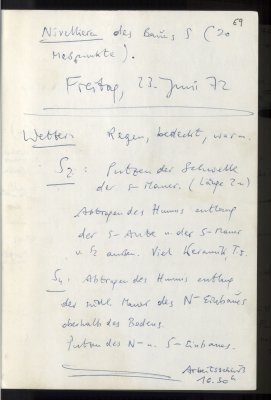 69
Nivellieren des Baus S (20
Messpunkte).
Freitag, 23. Juni 72
Wetter: Regen, bedeckt, warm.
S2: Putzen der Schwelle
der S-Mauer. (Länge 2m)
Abtragen des Humus entlang
der S-Ante u. der S-Mauer
v. S2 außen. Viel Keramik
S4: Abtragen des Humus entlang
der südl. Mauer des N-Einbaues
oberhalb des Bodens.
Putzen des N- u. S-Einbaues.
Arbeitsschluß
16.30h